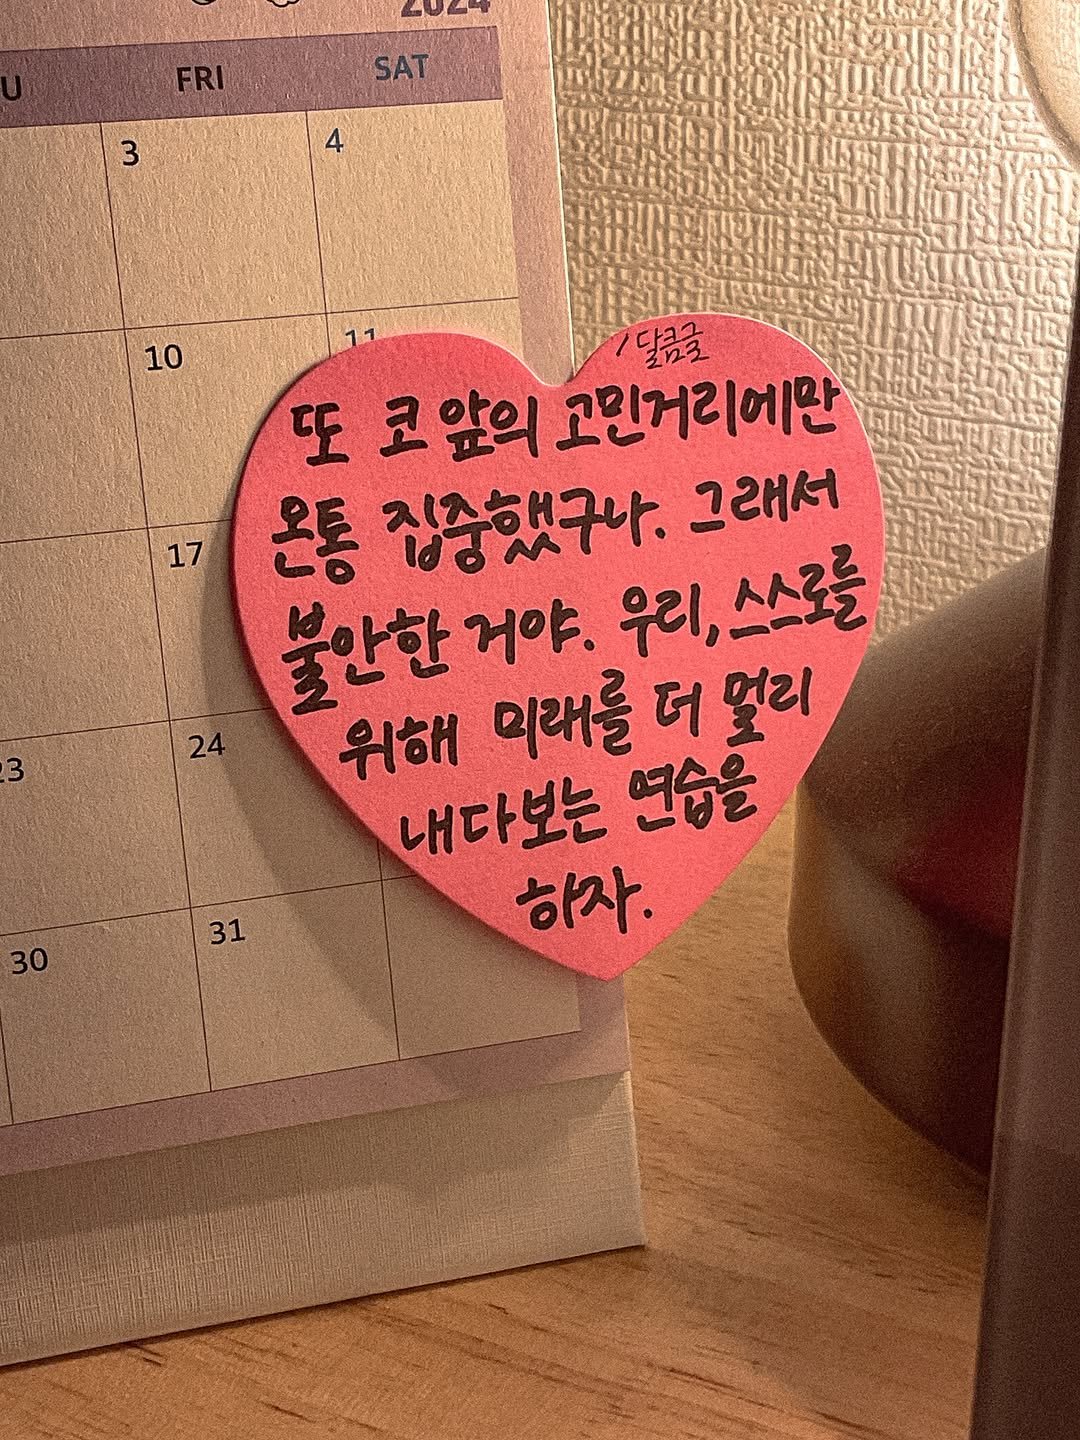 2024
FRI SAT
3 4
10 11
17
24
23
30 31
/달콤글
또 코 앞의 고민거리에만
온통 집중했구나. 그래서
불안한 거야. 우리, 스스로를
위해 미래를 더 멀리
내다보는 연습을
하자.